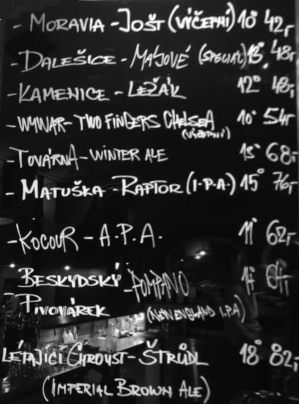 - MORAVIA - JOŠT (VÝČEPNÍ) 10° 42,-
- DALEŠICE - MÁJOVÉ (SPECIÁL) 13° 48,-
- KAMENICE - LEŽÁK 12° 48,-
- WYWAR - TWO FINGERS CHELSEA 10° 54,-
(VÝČEPNÍ)
- TOVÁRNA - WINTER ALE 15° 68,-
- MATUŠKA - RAPTOR (I.P.A.) 15° 76,-
- KOCOUR - A.P.A. 11° 62,-
- BESKYDSKÝ - POMPANO
PIVOVÁREK (NEW ENGLAND I.P.A)
LÉTAJÍCÍ CHROUST - ŠTRŮDL 18° 82,-
(IMPERIAL BROWN ALE)